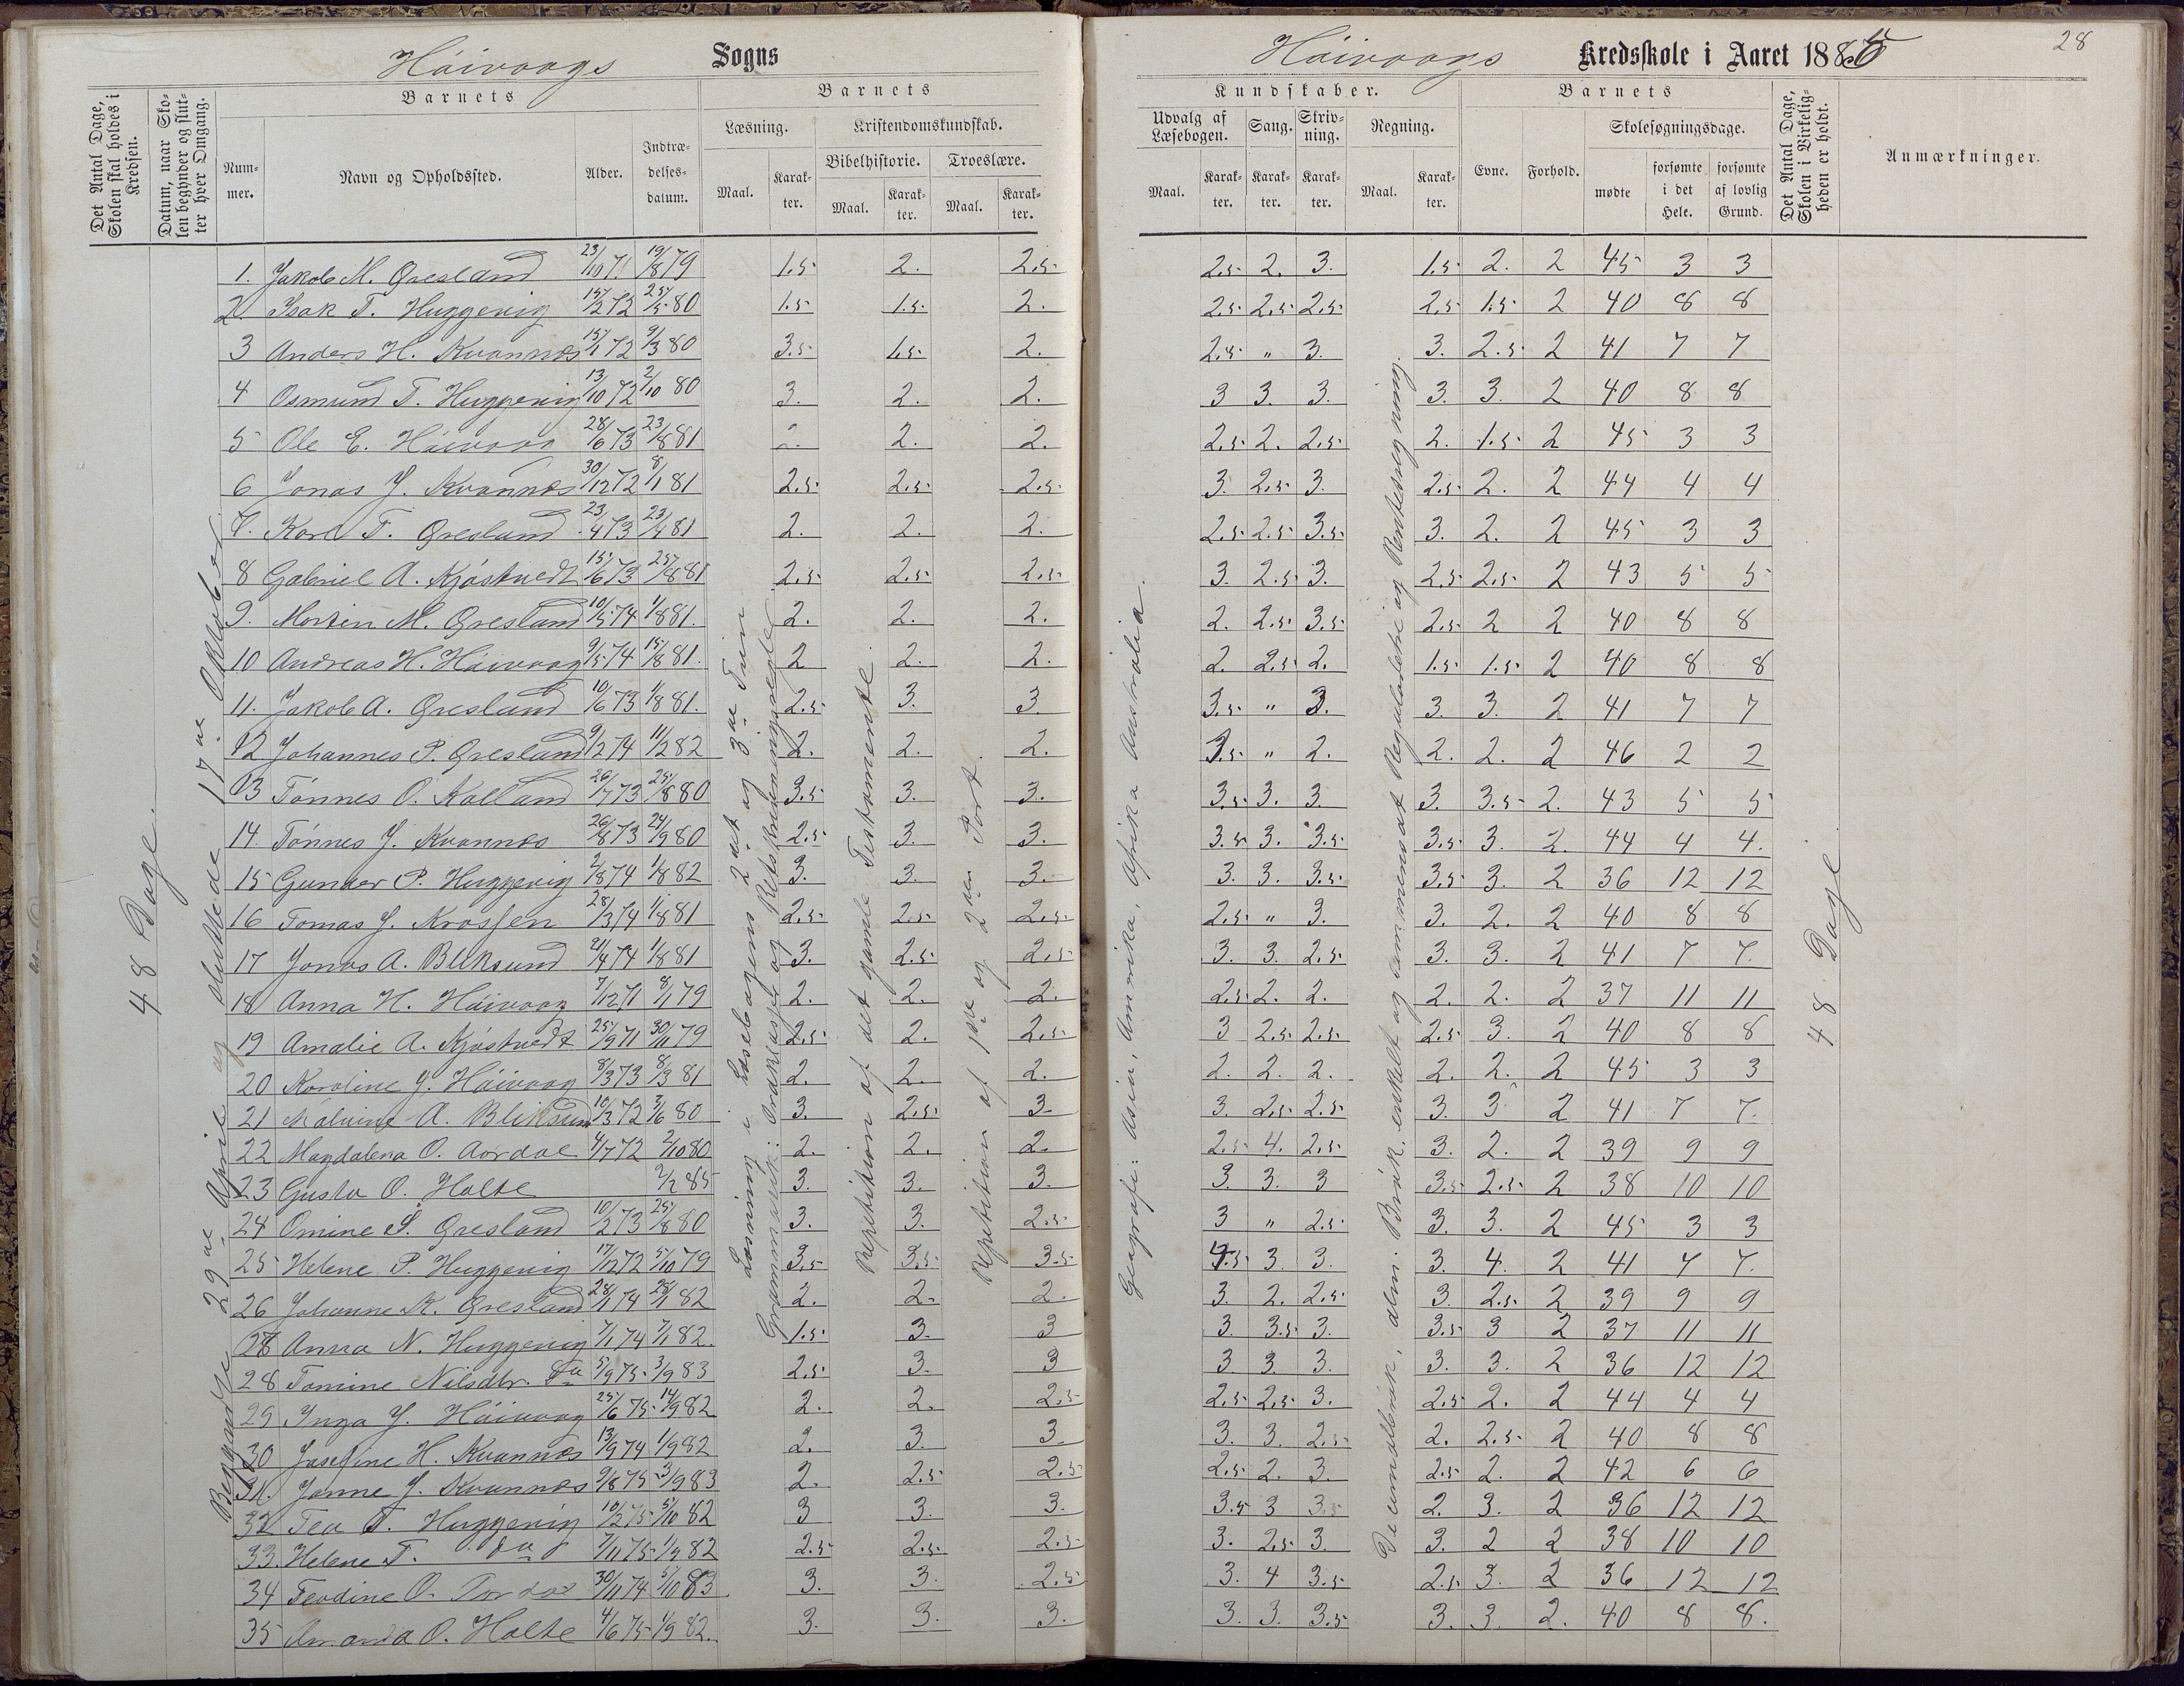 Háivaags Sogns
Háivaags Kredsskole i Aaret 1885
28
Det Antal Dage, Skolen skal holdes i Kredsen.
Datum, naar Skolen begynder og slutter hver Omgang.
Barnets
Nummer.
Navn og Opholdssted.
Alder.
Indtrædelsesdatum.
Barnets
Læsning.
Maal.
Karakter.
Kristendomskundskab.
Bibelhistorie.
Maal.
Karakter.
Troeslære.
Maal.
Karakter.
Kundskaber.
Udvalg af Læsebogen.
Maal.
Karakter.
Sang.
Karakter.
Skrivning.
Karakter.
Regning.
Maal.
Karakter.
Barnets
Evne.
Forhold.
Skolesøgningsdage.
mødte
forsømte i det Hele.
forsømte af lovlig Grund.
Det Antal Dage, Skolen i Virkeligheden er holdt.
Anmærkninger.
48 Dage.
Begyndte 29de April og sluttede 17de Oktober
Læsning i Læsebogens 2det og 3die Trin
Grammatik: Ordklasser og Retskrivningsregler
Repetition af det gamle Testamente.
Repetition af 1ste og 2den Part.
Geografi: Asia, Amerika, Afrika Australia.
Decimalbrøk, alm. Brøk, enkelt og sammensat Reguladetri og Rentesregning.
48 Dage
1. Jakob M. Gresland 23/10 71 19/8 79 1.5 2. 2.5 2.5 2. 3. 1.5 2. 2 45 3 3
2 Isak T. Huggevig 15/2 72 25/5 80 1.5 1.5 2. 2.5 2.5 2.5 2.5 1.5 2 40 8 8
3 Anders H. Kvannes 15/1 72 9/3 80 3.5 1.5 2. 2.5 " 3. 3. 2.5 2 41 7 7
4 Osmund T. Huggevig 13/10 72 2/10 80 3. 2. 2. 3 3. 3. 3. 3. 2 40 8 8
5 Ole E. Háivaag 28/6 73 23/8 81 2. 2. 2. 2.5 2. 2.5 2. 1.5 2 45 3 3
6 Jonas J. Kvannes 30/12 72 8/1 81 2.5 2.5 2.5 3. 2.5 3. 2.5 2. 2 44 4 4
7. Karl T. Gresland 23/4 73 23/4 81 2. 2. 2. 2.5 2.5 3.5 3. 2. 2 45 3 3
8 Gabriel A. Kjóstvedt 15/6 73 25/8 81 2.5 2.5 2.5 3. 2.5 3. 2.5 2.5 2 43 5 5
9. Morten M. Gresland 10/5 74 1/8 81. 2. 2. 2. 2. 2.5 3.5 2.5 2 2 40 8 8
10 Andreas H. Háivaag 9/5 74 15/8 81. 2 2. 2. 2. 2.5 2. 1.5 1.5 2 40 8 8
11. Jakob A. Gresland 10/6 73 1/8 81. 2.5 3. 3. 3.5 " 3. 3. 3. 2 41 7 7
12 Johannes P. Gresland 9/2 74 11/2 82 2. 2. 2. 3.5 " 2. 2. 2. 2 46 2 2
13 Tónnes O. Kalland 26/7 73 25/8 80 3.5 3. 3. 3.5 3. 3. 3. 3.5 2. 43 5 5
14. Tónnes J. Kvannes 26/8 73 24/9 80 2.5 3. 3. 3.5 3. 3.5 3.5 3. 2. 44 4 4.
15 Gunder P. Huggevig 2/8 74 1/8 82 3. 3. 3. 3. 3. 3.5 3.5 3. 2 36 12 12
16 Tomas J. Krossen 28/3 74 1/8 81 2.5 2.5 2.5 2.5 " 3. 3. 2. 2 40 8 8
17 Jonas A. Bliksund 21/4 74 1/8 81 3. 2.5 2.5 3. 3. 2.5 3. 3. 2 41 7 7.
18 Anna H. Háivaag 7/12 71 8/1 79 2. 2. 2. 2.5 2. 2. 2. 2. 2 37 11 11
19 Amalie A. Kjóstvedt 25/9 71 30/11 79 2.5 2. 2.5 3 2.5 2.5 2.5 3. 2 40 8 8
20 Karoline J. Háivaag 8/3 73 8/3 81 2. 2. 2. 2. 2. 2. 2. 2. 2 45 3 3
21 Malvine A. Bliksund 10/3 72 3/6 80 3. 2.5 3. 3. 2.5 2.5 3. 3 2 41 7 7.
22 Magdalena O. Aardal 4/7 72 2/10 80 2. 2. 2. 2.5 4. 2.5 3. 2. 2 39 9 9
23 Gusta O. Holte 2/2 85 3. 3. 3. 3. 3. 3 3.5 2.5 2 38 10 10
24 Omine S. Gresland 10/2 73 25/8 80 3. 3. 2.5 3 " 2.5 3. 3. 2 45 3 3
25 Helene P. Huggevig 17/12 72 5/10 79 3.5 3.5 3.5 4.5 3. 3. 3. 4. 2 41 7 7.
26 Johanne K. Gresland 28/1 74 28/1 82 2. 2. 2. 3. 2. 2.5 3. 2.5 2 39 9 9
27 Anna N. Huggevig 7/1 74 7/1 82. 1.5 3. 3 3. 3.5 3. 3.5 3 2 37 11 11
28 Tomine Nilsdtr. Do 5/9 75 3/9 83 2.5 3. 3 3 3. 3. 3. 3. 2 36 12 12
29 Inga J. Háivaag 25/6 75 14/9 82 2. 2. 2.5 2.5 2.5 3. 2.5 2. 2 44 4 4
30 Josefine H. Kvannes 13/9 74 1/9 82 2. 3. 3. 3. 3. 2.5 2. 2.5 2 40 8 8
31. Janne J. Kvannes 9/8 75 3/9 83 2. 2.5 2.5 2.5 2. 3. 2.5 2. 2 42 6 6
32 Tea T. Huggevig 10/2 75 5/10 82 3 3. 3. 3.5 3 3.5 2. 3. 2 36 12 12
33. Helene T. do 7/11 75 1/9 82 2.5 2.5 2.5 3. 2.5 3. 3. 2 2 38 10 10
34 Teodine O. 30/11 74 5/10 83 3. 3. 2.5 3. 4 3.5 2.5 3. 2 36 12 12
35 Amanda O. Holte 4/6 75 1/9 82. 3. 3. 3. 3. 3. 3.5 3. 3. 2. 40 8 8.